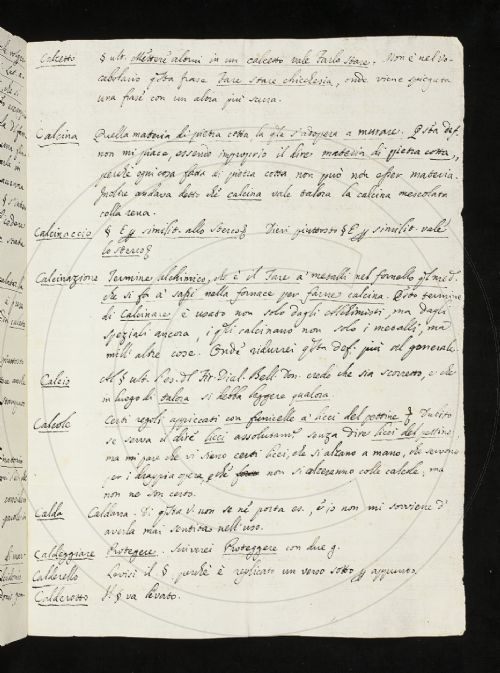 Calcetto § ult. Mettere alcuni in un calcetto vale Farlo stare. Non è nel Vo-
cabolario qsta frase Fare stare chichesia, onde viene spiegata
una frase con un altra più scura.
Calcina Quella materia di pietra cotta la qle s'adopera a murare. Qsta def.
non mi piace, essendo improprio il dire materia di pietra cotta,
perchè ogni cosa fatta di pietra cotta non può nò esser materia.
Inoltre andava detto chè calcina vale talora la calcina mescolata
colla rena.
Calcinaccio § E similit. allo sterco Direi piuttosto § E similit. vale
lo sterco
Calcinazione Termine Alchimico, che è il Fare a' metalli nel fornello
che si fa a' sassi nella fornace per farne calcina. Qsto termine
di Calcinare è usato non solo dagli Alchimisti, ma dagli
speziali ancora, i qli calcinano non solo i metalli, ma
mill' altre cose. Onde ridurrei qsta def. più al generale.
Calcio Al § ult. Les. Il Fir. Dial. Bell. Don. credo che sia scorretto, e che
in luogo di talora si debba leggere qualora.
Calcole Certi regoli appiccati con funicelle a' licci del pettine
se serva il dire licci assolutamt. senza dire licci del pettine,
ma mi pare che vi sieno certi licci, che si alzano a mano, che servono
per i drappi a opera, chè non si alzeranno colle calcole, ma
non ne son certo.
Calda Caldana. Di qsta V. non se nè porta es., e io non mi sovviene d'
averla mai sentita nell' uso.
Caldeggiare Protegere. Scriverei Proteggere con due g.
Calderello Levisi il §, perchè è replicato un verso sotto appunto.
Calderotto Il § va levato.